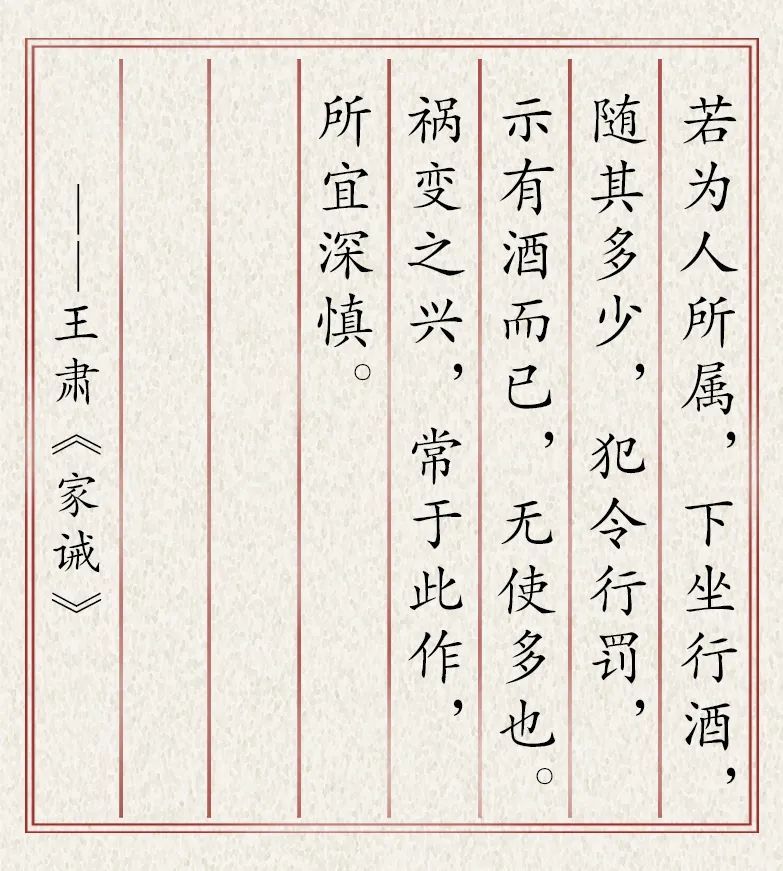 若为人所属，下坐行酒，
随其多少，犯令行罚，
示有酒而已，无使多也。
祸变之兴，常于此作，
所宜深慎。
——王肃《家诫》